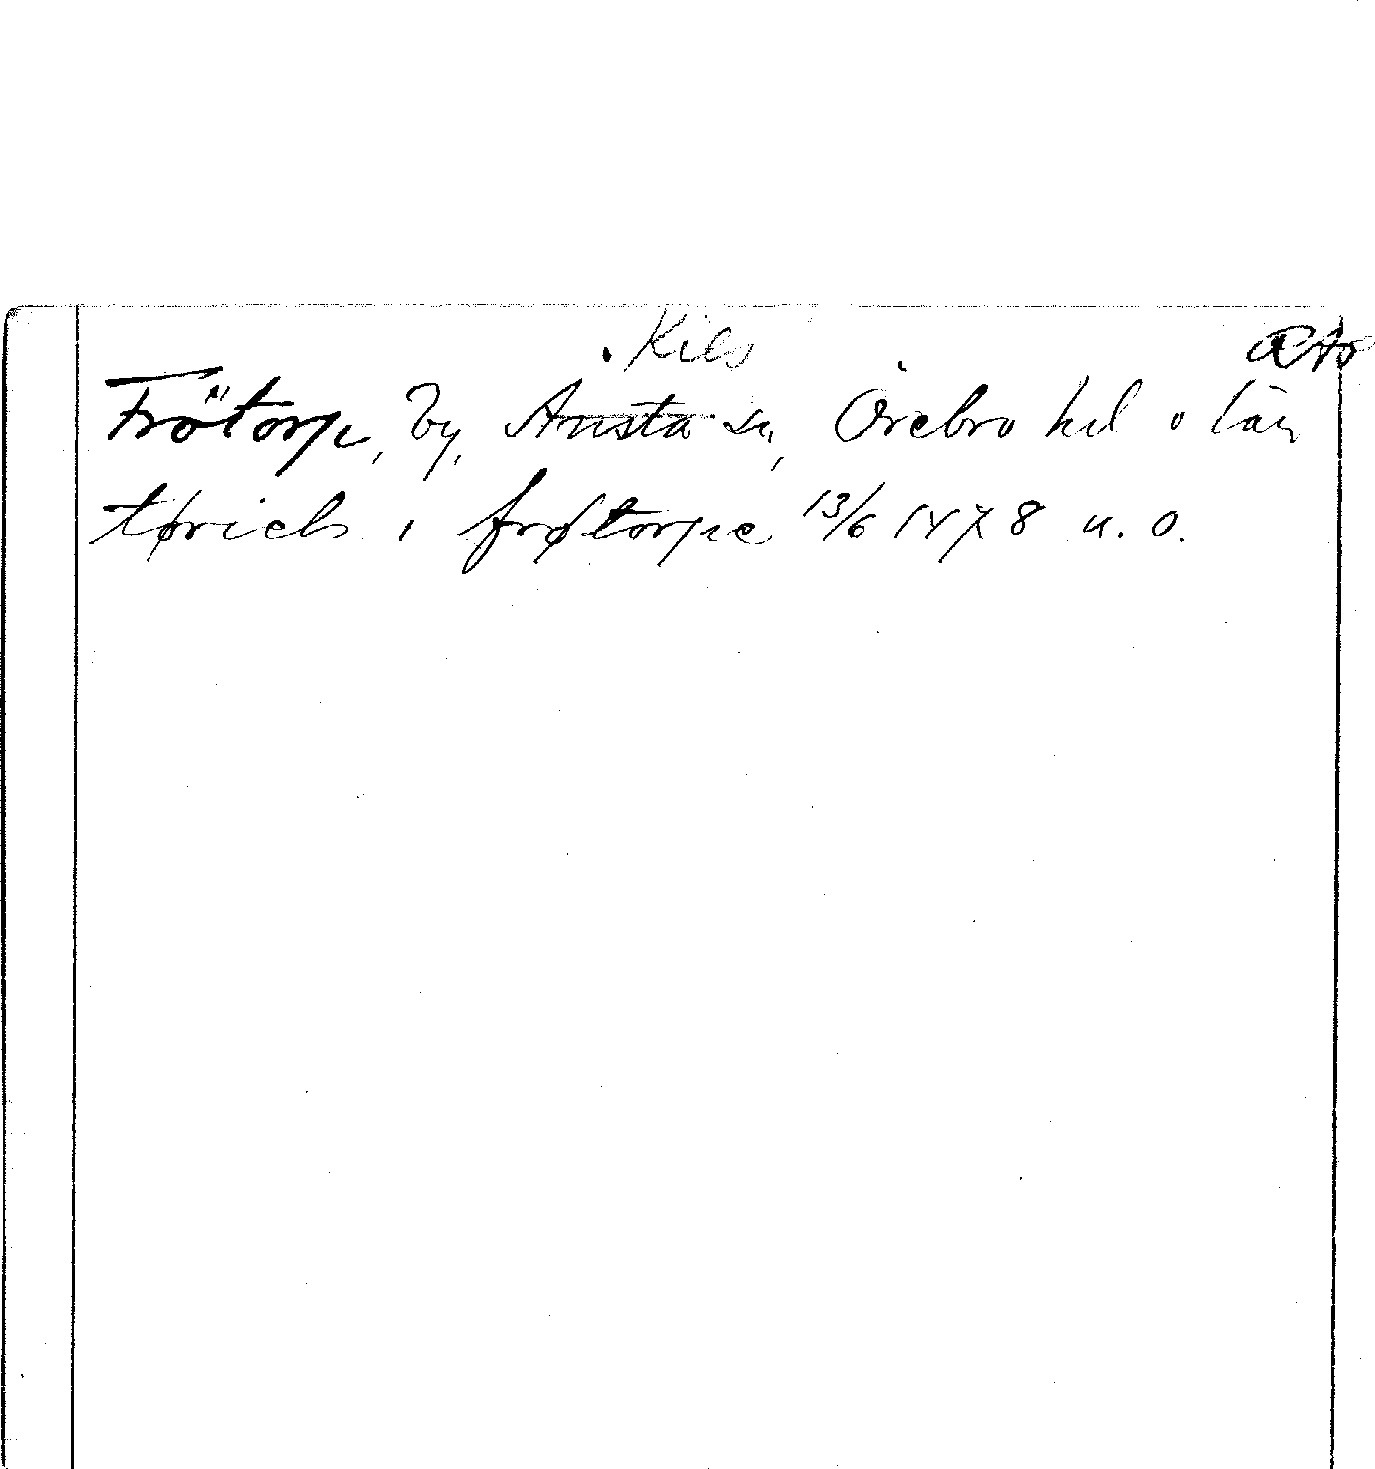 Kils
Frötorp, by, Ansta sn, Örebro hd o län
tørich i frøtorpe 13/6 1478 u. o.